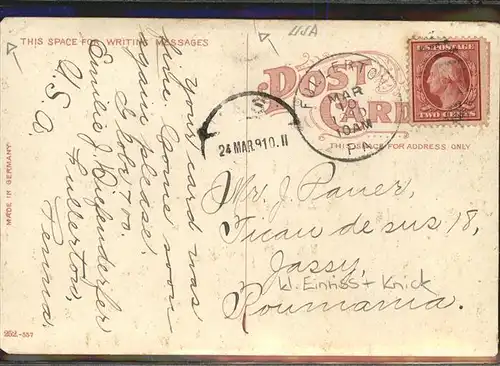 USA
THIS SPACE FOR WRITING MESSAGES
POST
CARD
THIS SPACE FOR ADDRESS ONLY
FULLERTON
MAR
10
10AM
PA.
U.S. POSTAGE
TWO CENTS
24 MAR. 910. 11
Your card was
fine. Come soon
again please.
I Colr too.
Emilie J. Diefenderfer
Fullerton,
Penna.
U. S. A
Mr. J. Pauer,
Ticau de sus 18,
Jassy,
kl. Einriss + Knick
Roumania.
MADE IN GERMANY
252-557